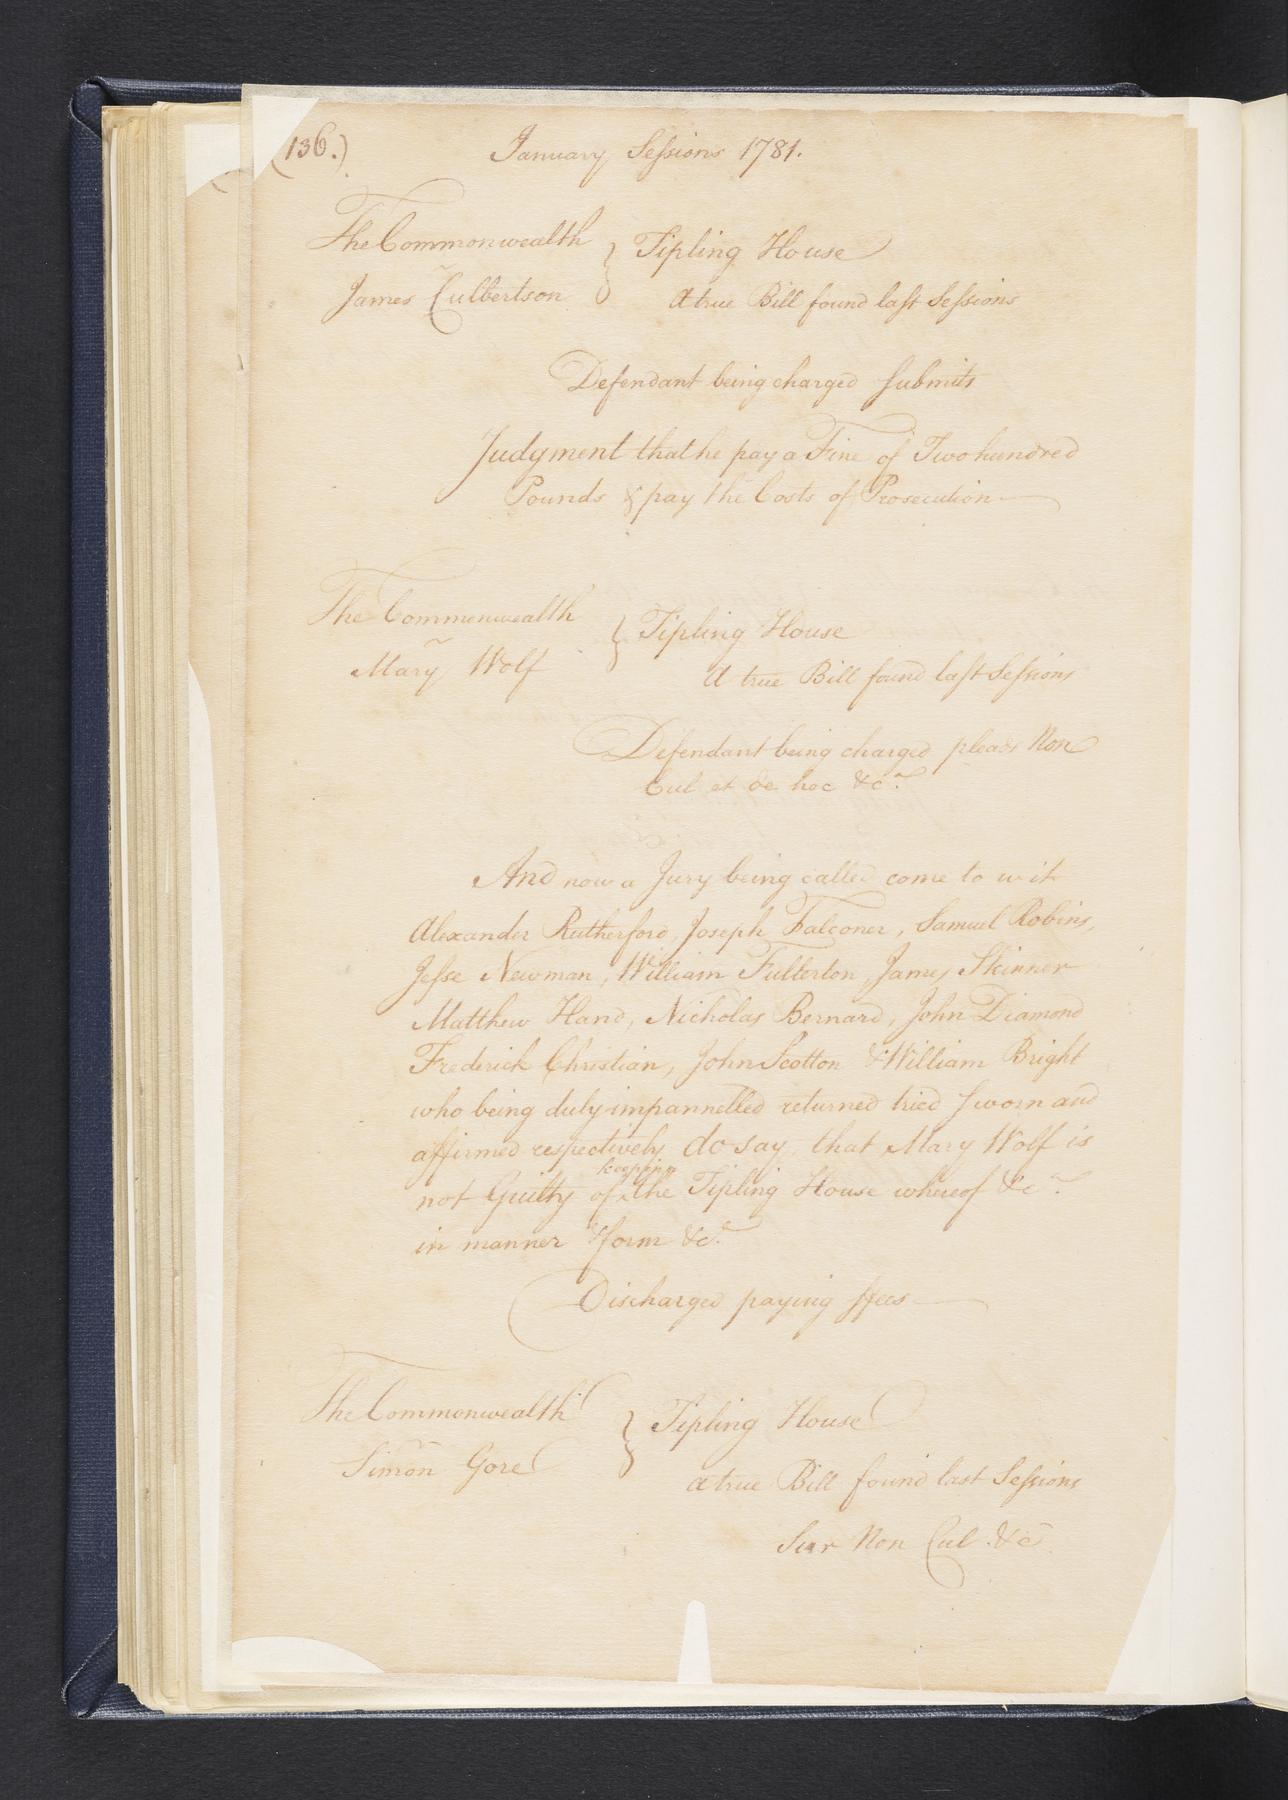 (136.)
January Sessions 1781.
The Commonwealth } Tipling House
James Culbertson A true Bill found last Sessions
Defendant being charged submits
Judgment that he pay a Fine of Two hundred
Pounds & pay the Costs of Prosecution
The Commonwealth } Tipling House
Mary Wolf A true Bill found last Sessions
Defendant being charged pleads Non
Cul et de hoc &c.
And now a Jury being called come to wit
Alexander Rutherford, Joseph Falconer, Samuel Robins,
Jesse Newman, William Fullerton, James Skinner
Matthew Hand, Nicholas Bernard, John Diamond
Frederick Christian, John Scotton & William Bright
who being duly impannelled returned tried sworn and
affirmed respectively do say, that Mary Wolf is
keeping
not Guilty of ^ the Tipling House whereof &c.
in manner & form &c.
Discharged paying ffees
The Commonwealth } Tipling House
Simon Gore
A true Bill found last Sessions
Sur Non Cul &c